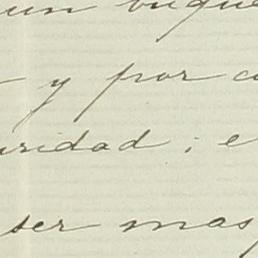 un buque
y por c
uridad; e
ser mas